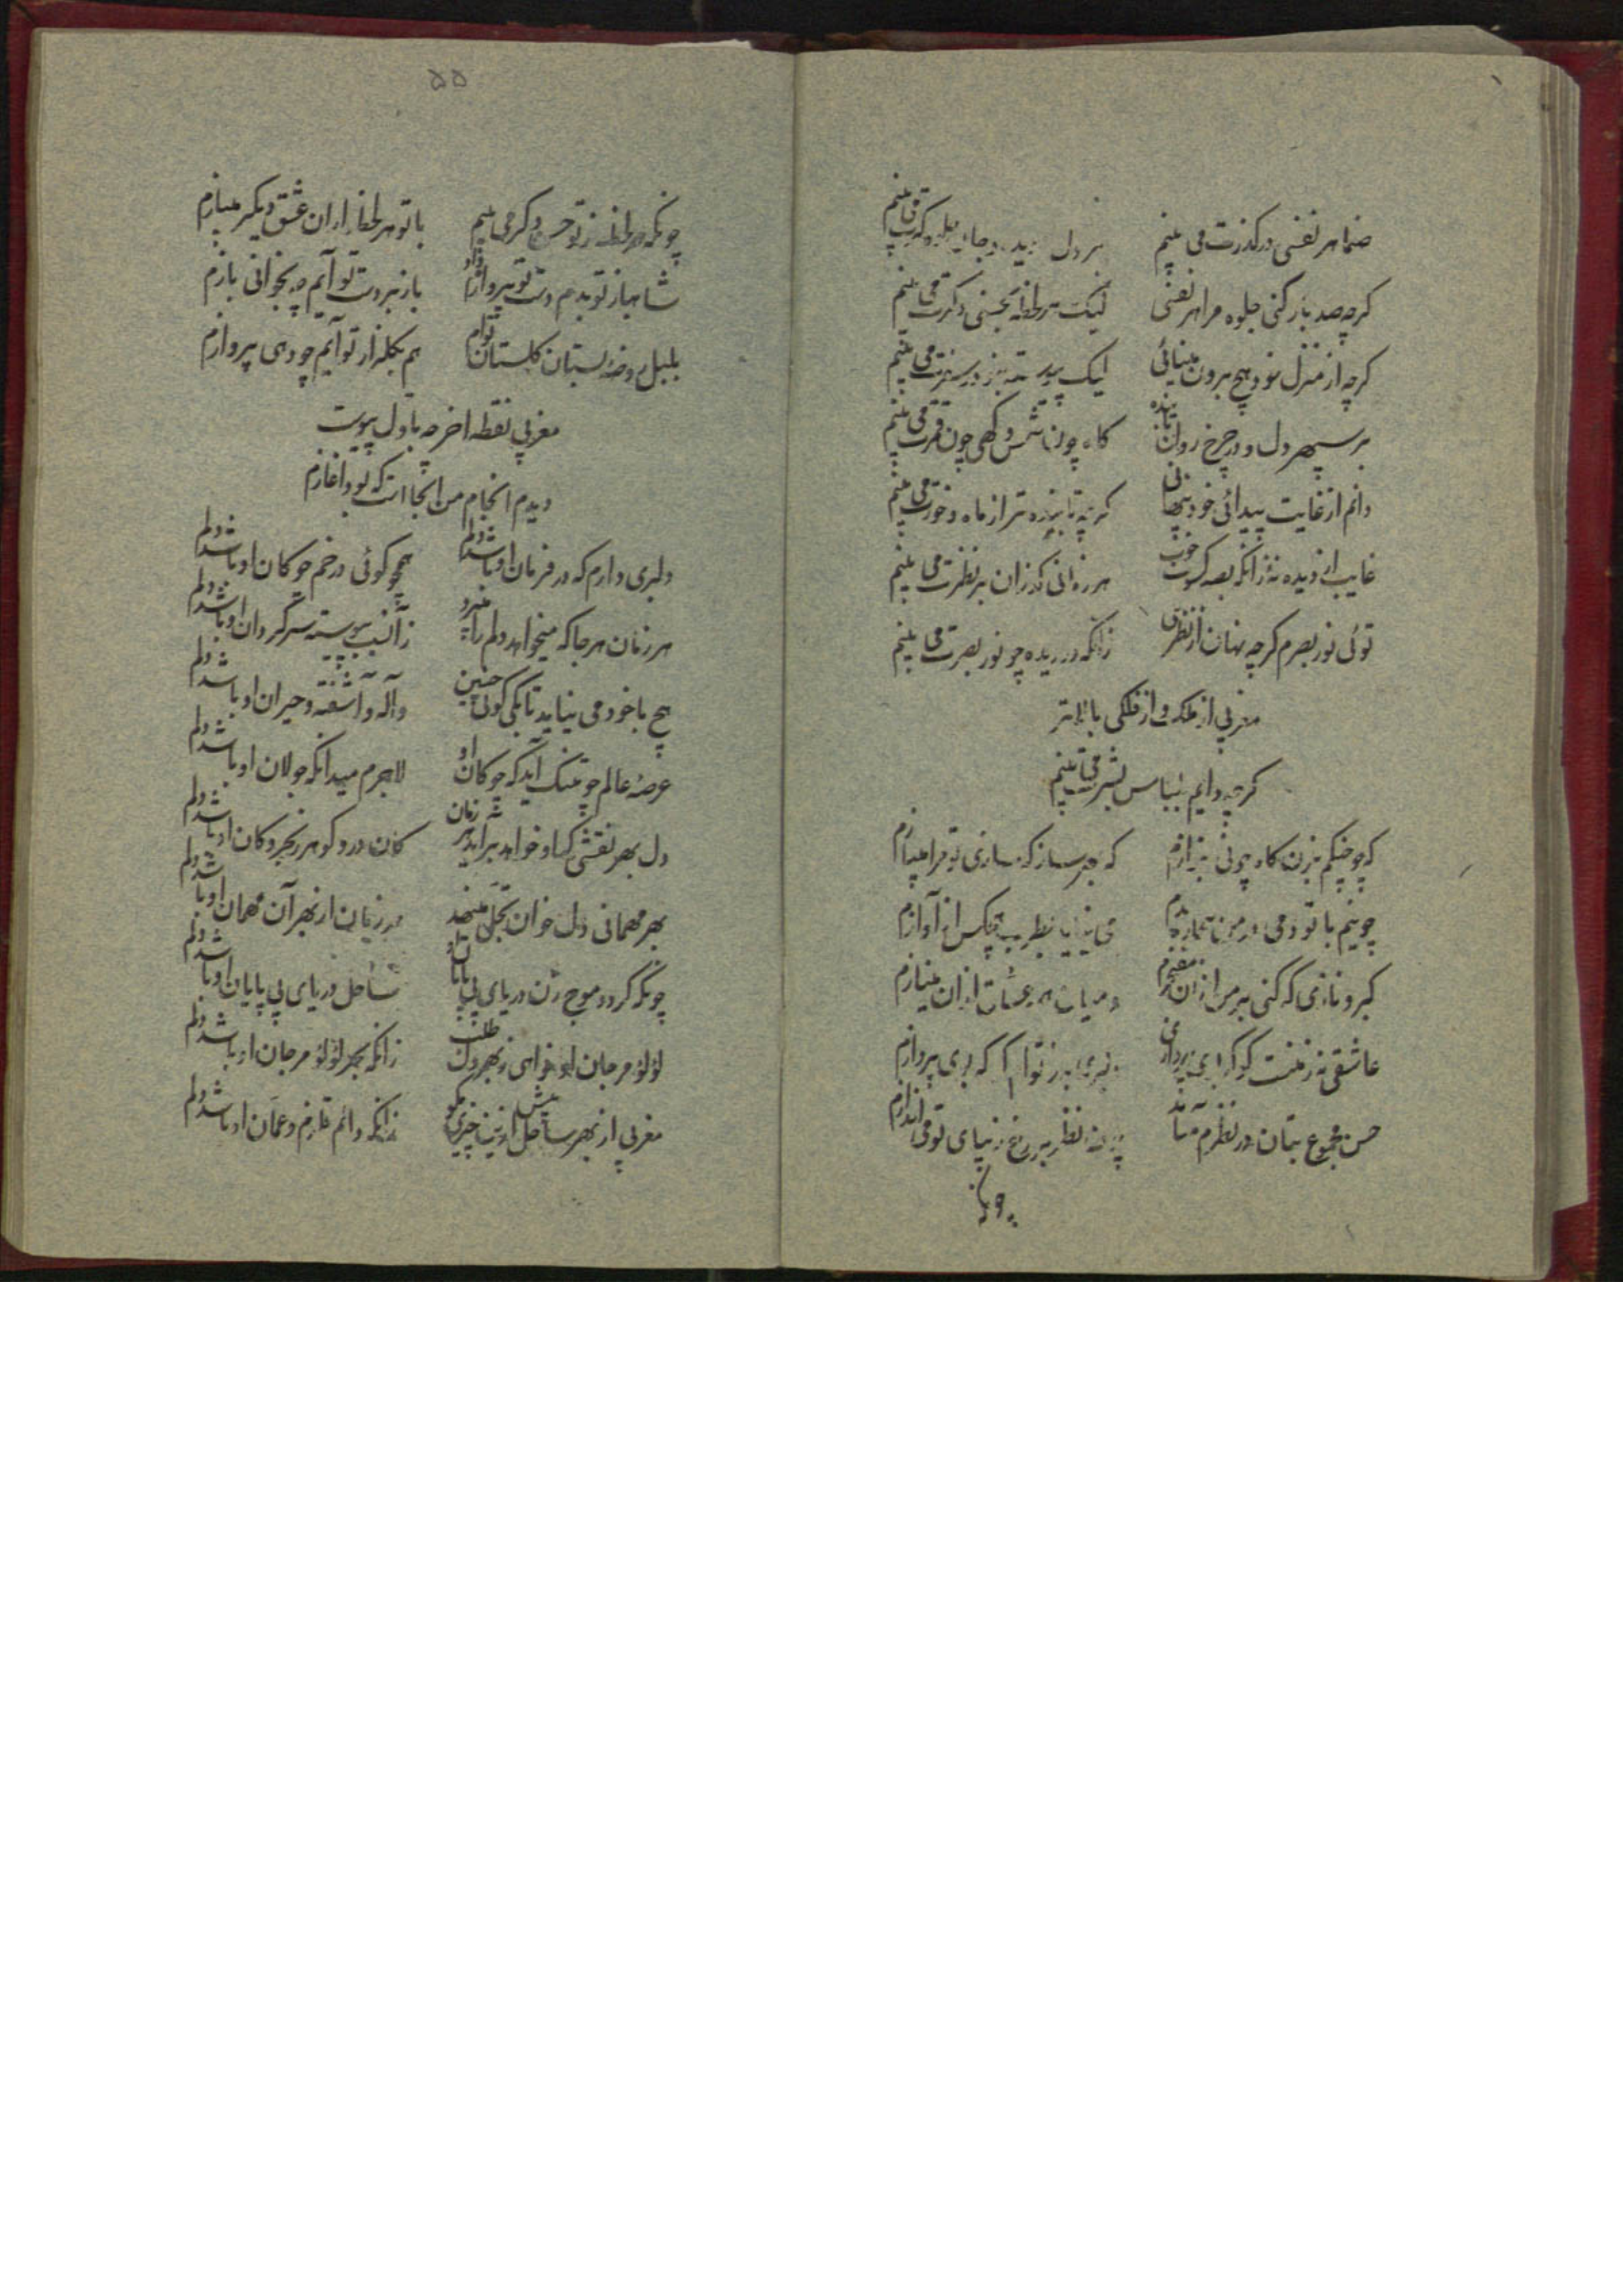 صنما هر نفسی در گذرت می بینم
بر دل و دیده و جان جلوه گرت می بینم
گرچه صد بار کنی جلوه مرا هر نفسی
لیک هر لحظه بحسنی دگرت می بینم
گرچه از منزل خود هیچ برون مینائی
لیک پیوسته بنز در سفرت می بینم
بر سپهر دل و در چرخ روان تابنده
گاه چون شمس و گهی چون قمرت می بینم
دانم از غایت پیدائی خود پنهانی
گرچه تابنده تر از ماه و خورت می بینم
غایب از دیده نه زانکه بصد کسوت خوب
هر زمانی گذران بر نظرت می بینم
توئی نور بصرم گرچه نهان از نظری
زانکه در دیده چو نور بصرت می بینم
مغربی از ملک و از فلکی بالاتر
گرچه دایم بلباس بشرت می بینم
که چو چنگم بزن گاه چو نی بنوازم
که بهر ساز که سازی تو مرا میسازم
چو نیم با تو دمی در من بیچاره بدم
می نیاید بطریب هیچکس از آوازم
کبر و نازی که کنی بر من از آن مفتخرم
در میان همه عشاق از آن مینازم
عاشقی نه ز منست گو که پردازی
حسن مجموع بتان در نظرم می آید
چون نظر بر رخ زیبای تو می اندازم
چونکه
۵۵
چونکه هر لحظه ز تو حسن دگر می بینم
با تو هر لحظه از آن عشق دیگر میبازم
شاهباز تو بدم دست تو پرواز داد
باز بر دست تو آیم چه بخوانی بازم
بلبل روضه بستان گلستان توام
هم بگلزار تو آیم چو دهی پروازم
مغربی نقطه آخر چه باول پیوست
دیدم انجام من آنجا است که بود آغازم
دلبری دارم که در فرمان او باشد دلم
همچو گوئی در خم چوگان او باشد دلم
هر زمان هر جا که میخواهد دلم را میبرد
زانسبب پیوسته سرگردان او باشد دلم
هیچ با خود می نیاید تا بکی گوئی چنین
واله و آشفته و حیران او باشد دلم
عرصه عالم چو تنگ آید گه چوگان او
لاجرم میدانگه جولان او باشد دلم
دل بهر نقشی که او خواهد برآید هر زمان
کان در و گوهر و بحر و کان او باشد دلم
بهر مهمانی دل خوان تجلی مینهد
هر زمان از بهر آن مهمان او باشد دلم
چونکه گردد موج زن دریای بی پایان او
ساحل دریای بی پایان او باشد دلم
لؤلؤ مرجان او خواهی ز بهر دل طلب
زانکه بحر لؤلؤ مرجان او باشد دلم
مغربی از بهر ساحل بیش ازینت چیزی مگو
زانکه دائم قلزم و عمان او باشد دلم